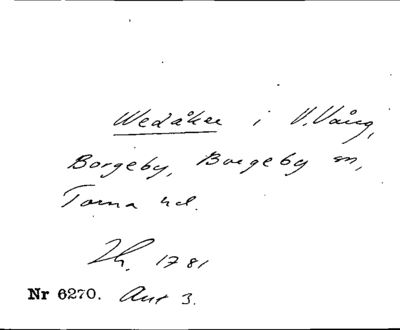 Wedåker i V. Vång,
Borgeby, Borgeby sn,
Torna hd.
Zh. 1781
Nr 6270. Aut 3.